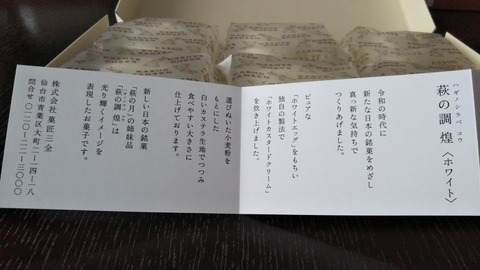 ハギノシラベ コウ
萩の調 煌〈ホワイト〉
令和の時代に
新たな日本の銘菓をめざし
真っ新な気持ちで
つくりあげました。
ピュアな
「ホワイトエッグ」をもちい
独自の製法で
「ホワイトカスタードクリーム」
を炊き上げました。
選びぬいた小麦粉を
もとにした
白いカステラ生地でつつみ
食べやすい大きさに
仕上げております。
新しい日本の銘菓
「萩の月」の姉妹品
「萩の調 煌」は
光り輝くイメージを
表現したお菓子です。
株式会社 菓匠三全
仙台市青葉区大町二-一四-一八
問合せ〇一二〇-二二-三〇〇〇